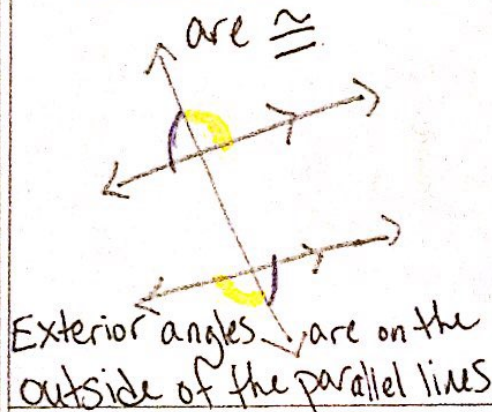 are ≅
Exterior angles are on the
outside of the parallel lines